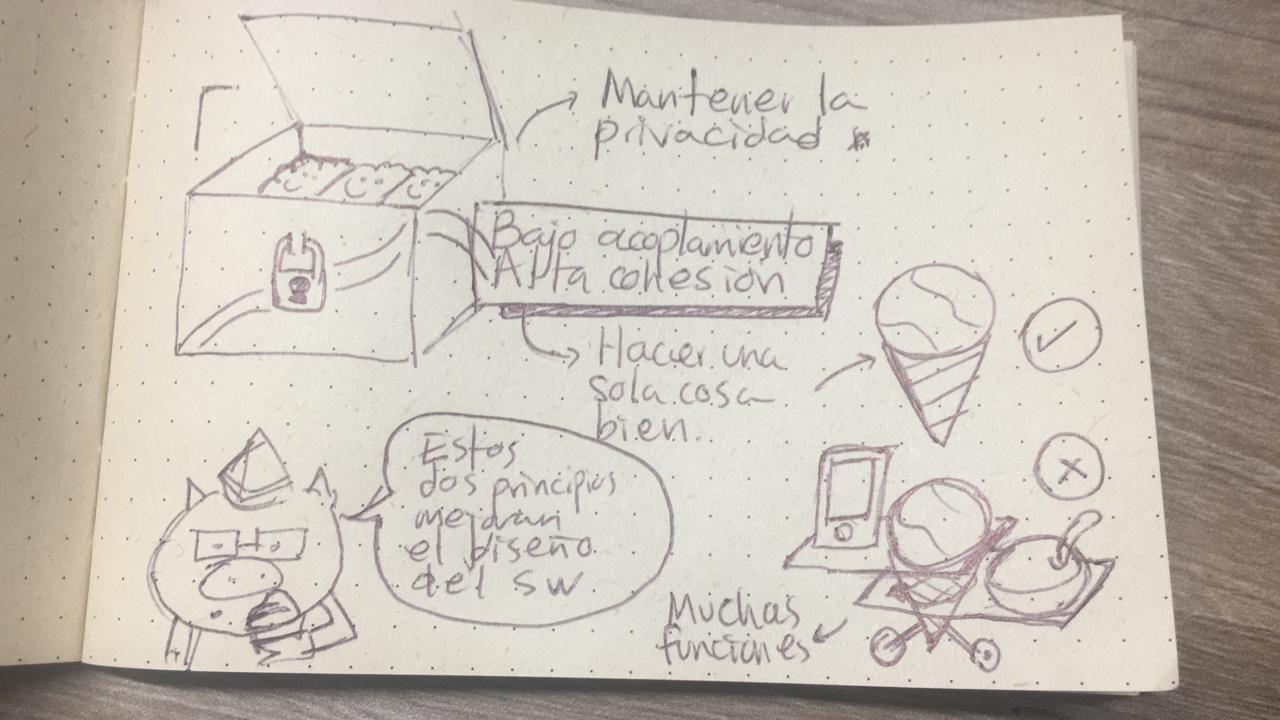 Mantener la
privacidad
Bajo acoplamiento
Alta cohesión
Hacer una
sola cosa
bien.
Estos
dos principios
mejoran
el diseño
del sw
Muchas
funciones